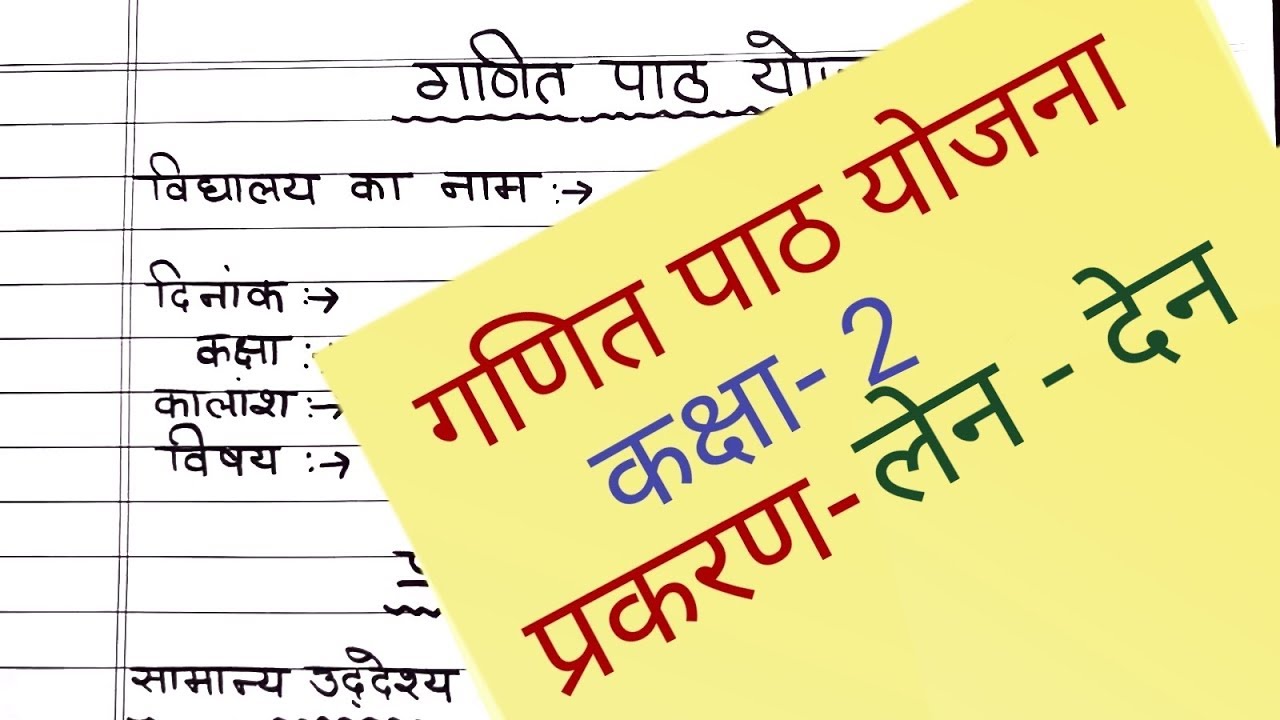 गणित पाठ
विद्यालय का नाम :→
दिनांक :→
कक्षा :
कालांश :→
विषय :→
सामान्य उद्देश्य
गणित पाठ योजना
कक्षा- 2
प्रकरण- लेन - देन